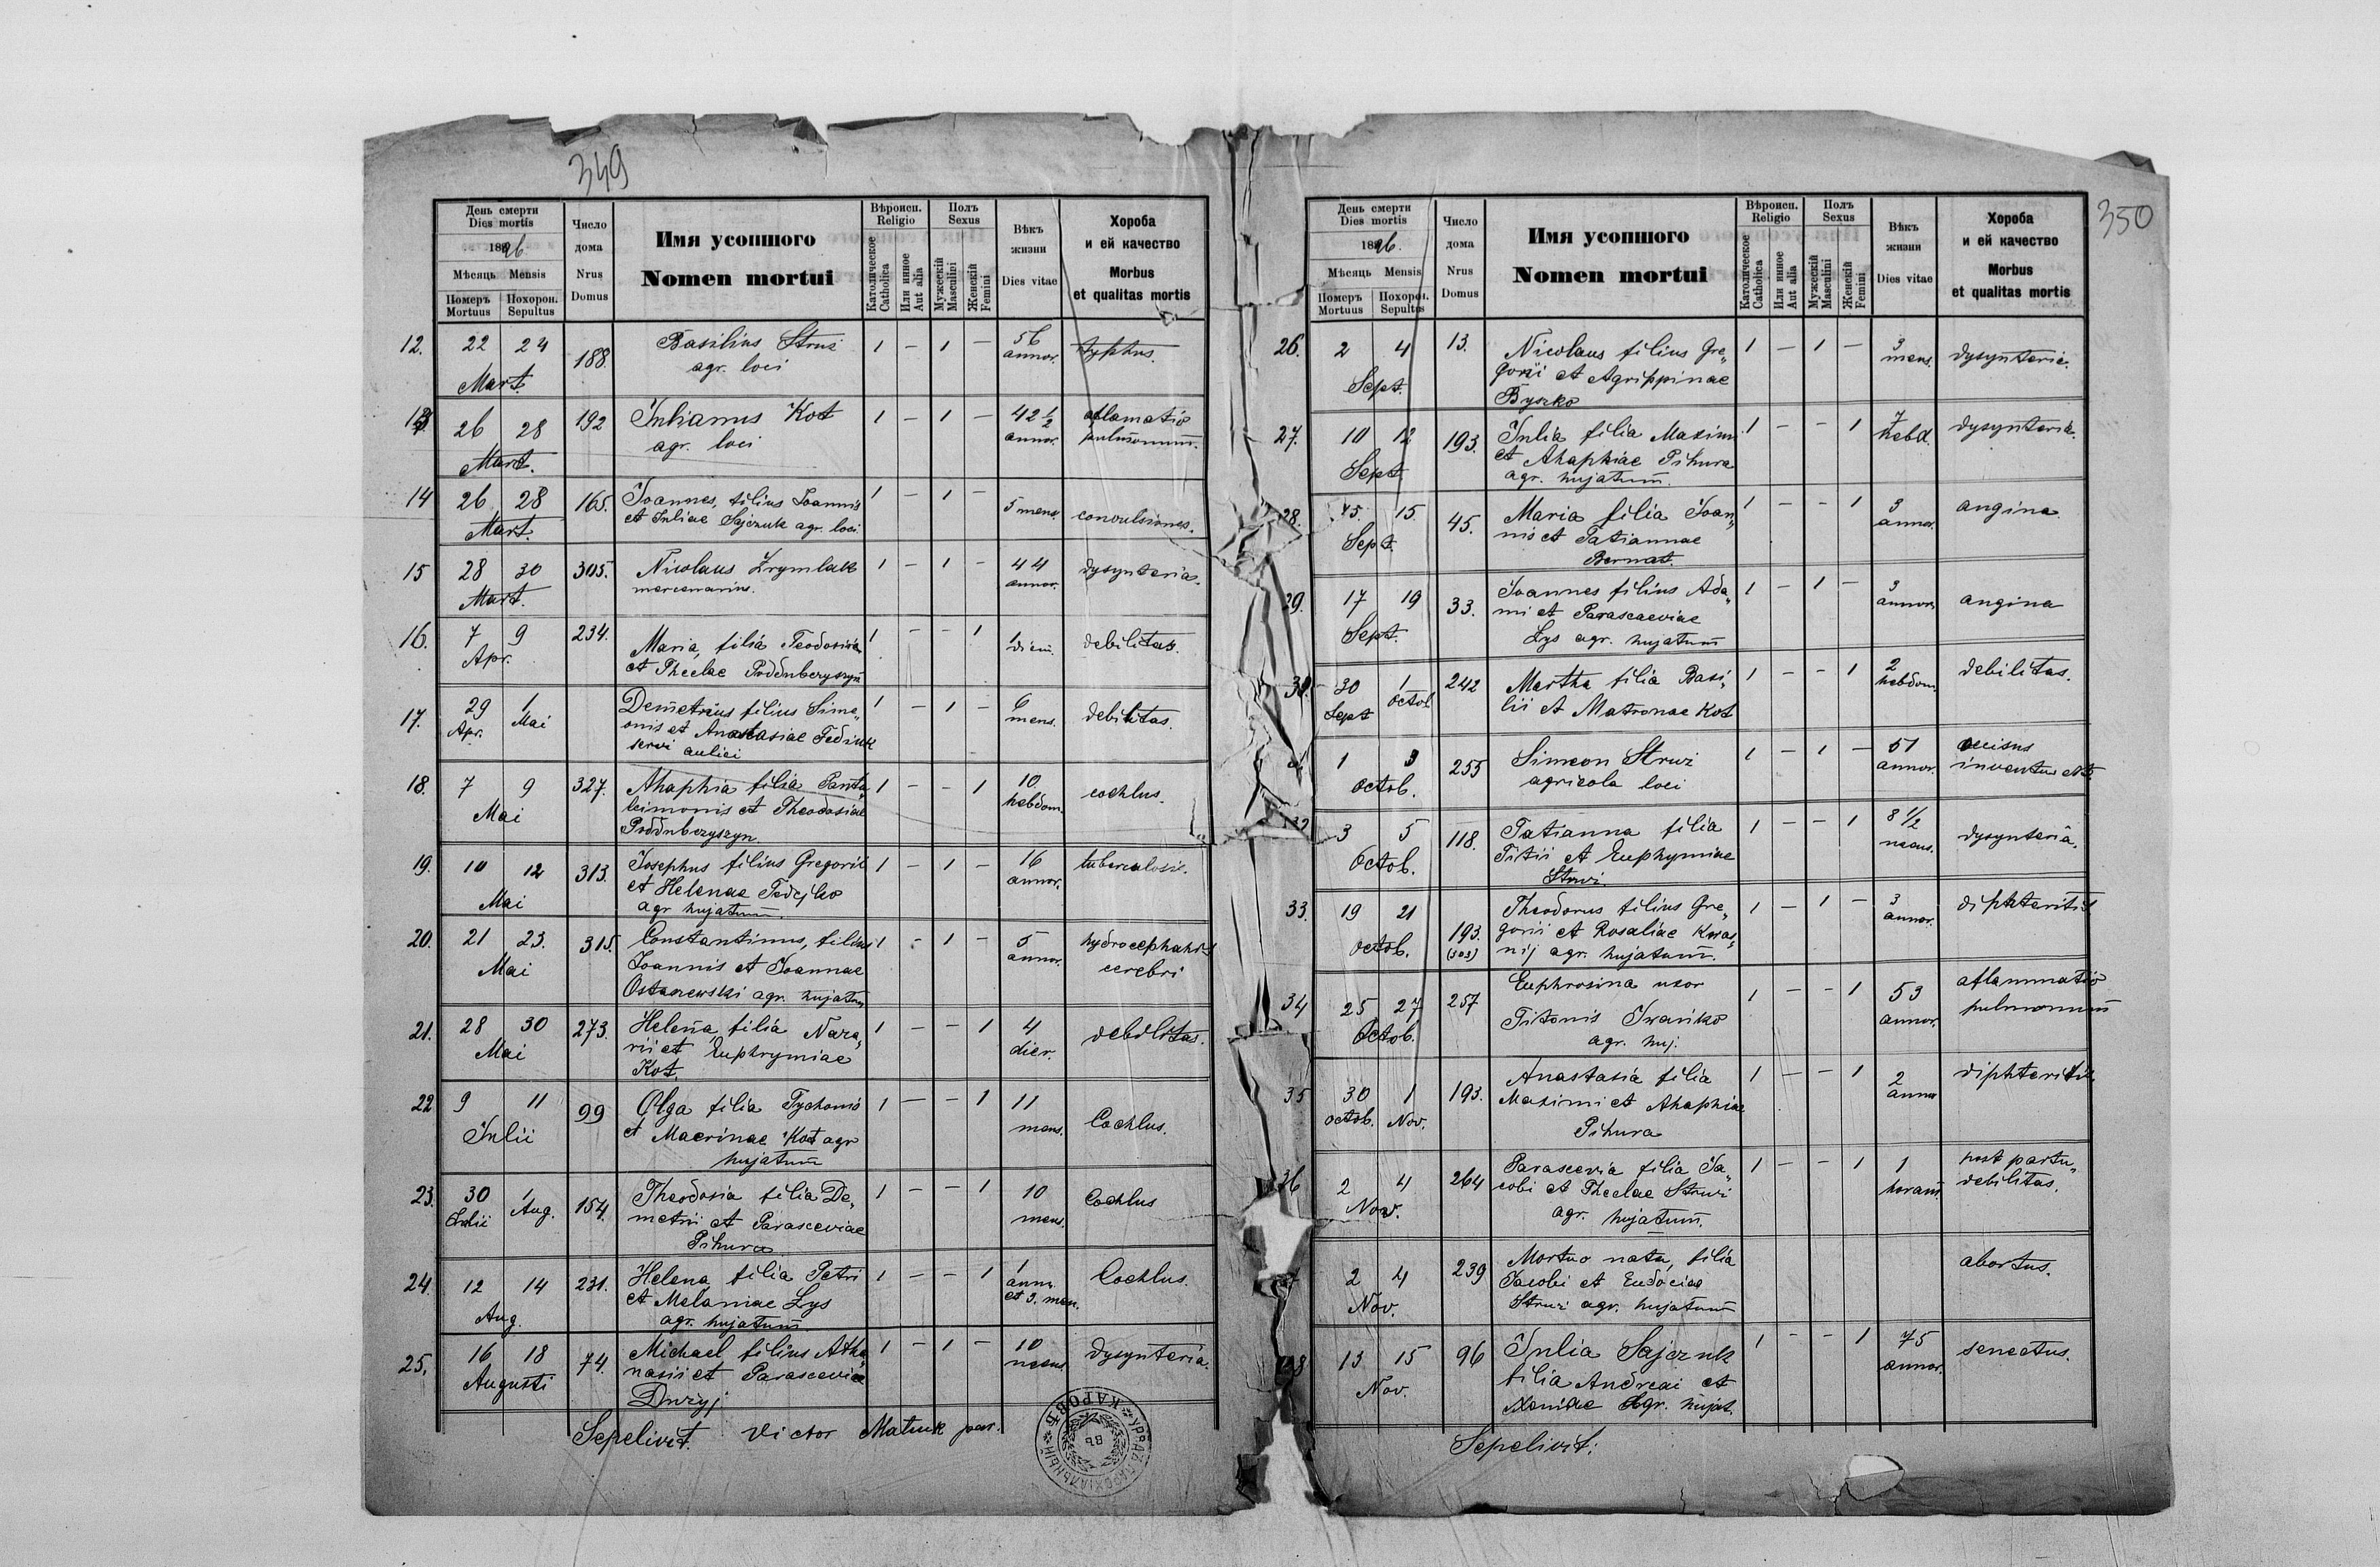 349
День смерти
Dies mortis
1886
Мѣсяць Mensis
Померъ Mortuus
Похорон. Sepultus
Число дома
Nrus Domus
Имя усопшого
Nomen mortui
Вѣроисп.
Religio
Католическое Catholica
Или инное Aut alia
Полъ
Sexus
Мужескій Masculini
Женскій Femini
Вѣкъ жизни
Dies vitae
Хороба
и ей качество
Morbus
et qualitas mortis
12. 22 24 188. Basilius Struś 1 – 1 – 56 annor. typhus.
Mart. agr. loci
13 26 28 192 Julianus Kot 1 – 1 – 42 1/2 annor. aflamatio
Mart. agr. loci pulmonum.
14 26 28 165. Joannes, filius Joannis 1 – 1 – 5 mens. convulsiones.
Mart. et Juliae Sajczuk agr. loci
15 28 30 305. Nicolaus Zrymlak 1 – 1 – 44 annor. dysynteria.
Mart. mercenarius.
16. 7 9 234. Maria, filia Teodosii 1 – – 1 1 diem. debilitas.
Apr. et Theclae Poddubczyszyn
17. 29 1 Demetrius filius Sime„ 1 – 1 – 6 mens. debilitas.
Apr. Mai onis et Anastasiae Fediuk
servi aulici
18. 7 9 327. Ahaphia filia Panta„ 1 – – 1 10. hebdom. cochlus.
Mai leimonis et Theodosiae
Poddubczyszyn
19. 10 12 313. Josephus filius Gregorii 1 – 1 – 16 annor. tuberculosis.
Mai et Helenae Fedejko
agr hujatum.
20. 21 23. 315. Constantinus, filius 1 – 1 – 5 annor. hydrocephalus
Mai Joannis et Joannae cerebri
Ostaszewski agr. hujatum
21. 28 30 273. Helena, filia Naza„ 1 – – 1 4 dier. debilitas.
Mai rii et Euphrymiae
Kot.
22 9 11 99 Olga filia Tychonis 1 – – 1 11 mens. Cochlus.
Julii et Macrinae Kot agr
hujatum
23. 30 1 154. Theodosia filia De„ 1 – – 1 10 mens. Cochlus
Julii Aug. metrii et Parasceviae
Pihura
24. 12 14 231. Helena filia Petri 1 – – 1 1 annu. et 3. men. Cochlus.
Aug. et Melaniae Lys
agr. hujatum.
25. 16 18 74. Michael filius Atha„ 1 – 1 – 10 mens. dysynteria.
Augusti nasii et Parasceviae
Duzyj
Sepelivit. Victor Matiuk par.
350
День смерти
Dies mortis
1886.
Мѣсяць Mensis
Померъ Mortuus
Похорон. Sepultus
Число дома
Nrus Domus
Имя усопшого
Nomen mortui
Вѣроисп.
Religio
Католическое Catholica
Или инное Aut alia
Полъ
Sexus
Мужескій Masculini
Женскій Femini
Вѣкъ жизни
Dies vitae
Хороба
и ей качество
Morbus
et qualitas mortis
26. 2 4 13. Nicolaus filius Gre„ 1 – 1 – 3 mens. dysynteria.
Sept. gorii et Agrippinae
Byszko
27. 10 12 193. Julia filia Maximi 1 – – 1 7 hebd. dysynteria.
Sept. et Ahaphiae Pihura
agr. hujatum.
28. 15. 15. 45. Maria filia Joan„ 1 – – 1 3 annor. angina
Sept. nis et Tatiannae
Bernat.
29. 17 19 33. Joannes filius Ada„ 1 – 1 – 3 annor. angina
Sept. mi et Parascaeviae
Lys agr. hujatum
30. 30 1 242 Martha filia Basi„ 1 – – 1 2 hebdom. debilitas.
Sept octob lii et Matronae Kot
1 3 255 Simeon Struś 1 – 1 – 51 annor. occisus
octob. agricola loci inventus est.
32 3 5 118. Tatianna filia 1 – – 1 8 1/2 mens. dysynteria.
Octob. Titii et Euphymiae
Struś.
33. 19 21 193. (303) Theodorus filius Gre„ 1 – 1 – 3 annor. diphteritis
octob. gorii et Rosaliae Kwas„
nij agr. hujatum.
34 25 27 257 Euphrosina uxor 1 – – 1 53 annor. aflammatio
Octob. Titonis Iwanko pulmonum
agr. huj.
35 30 1 193. Anastasia filia 1 – – 1 2 annor diphteritis
octob. Nov. Maximi et Ahaphiae
Pihura
36 2 4 264 Parascevia filia Ja„ 1 – – 1 1 horam. post partu„
Nov. cobi et Theclae Struś debilitas.
agr. hujatum.
2 4 239 Mortuo nata, filia abortus.
Nov. Jacobi et Eudociae
Struś agr. hujatum
38 13 15 96 Julia Sajczuk 1 – – 1 75 annor. senectus.
Nov. filia Andreai et
Xeniae agr. hujat.
Sepelivit: